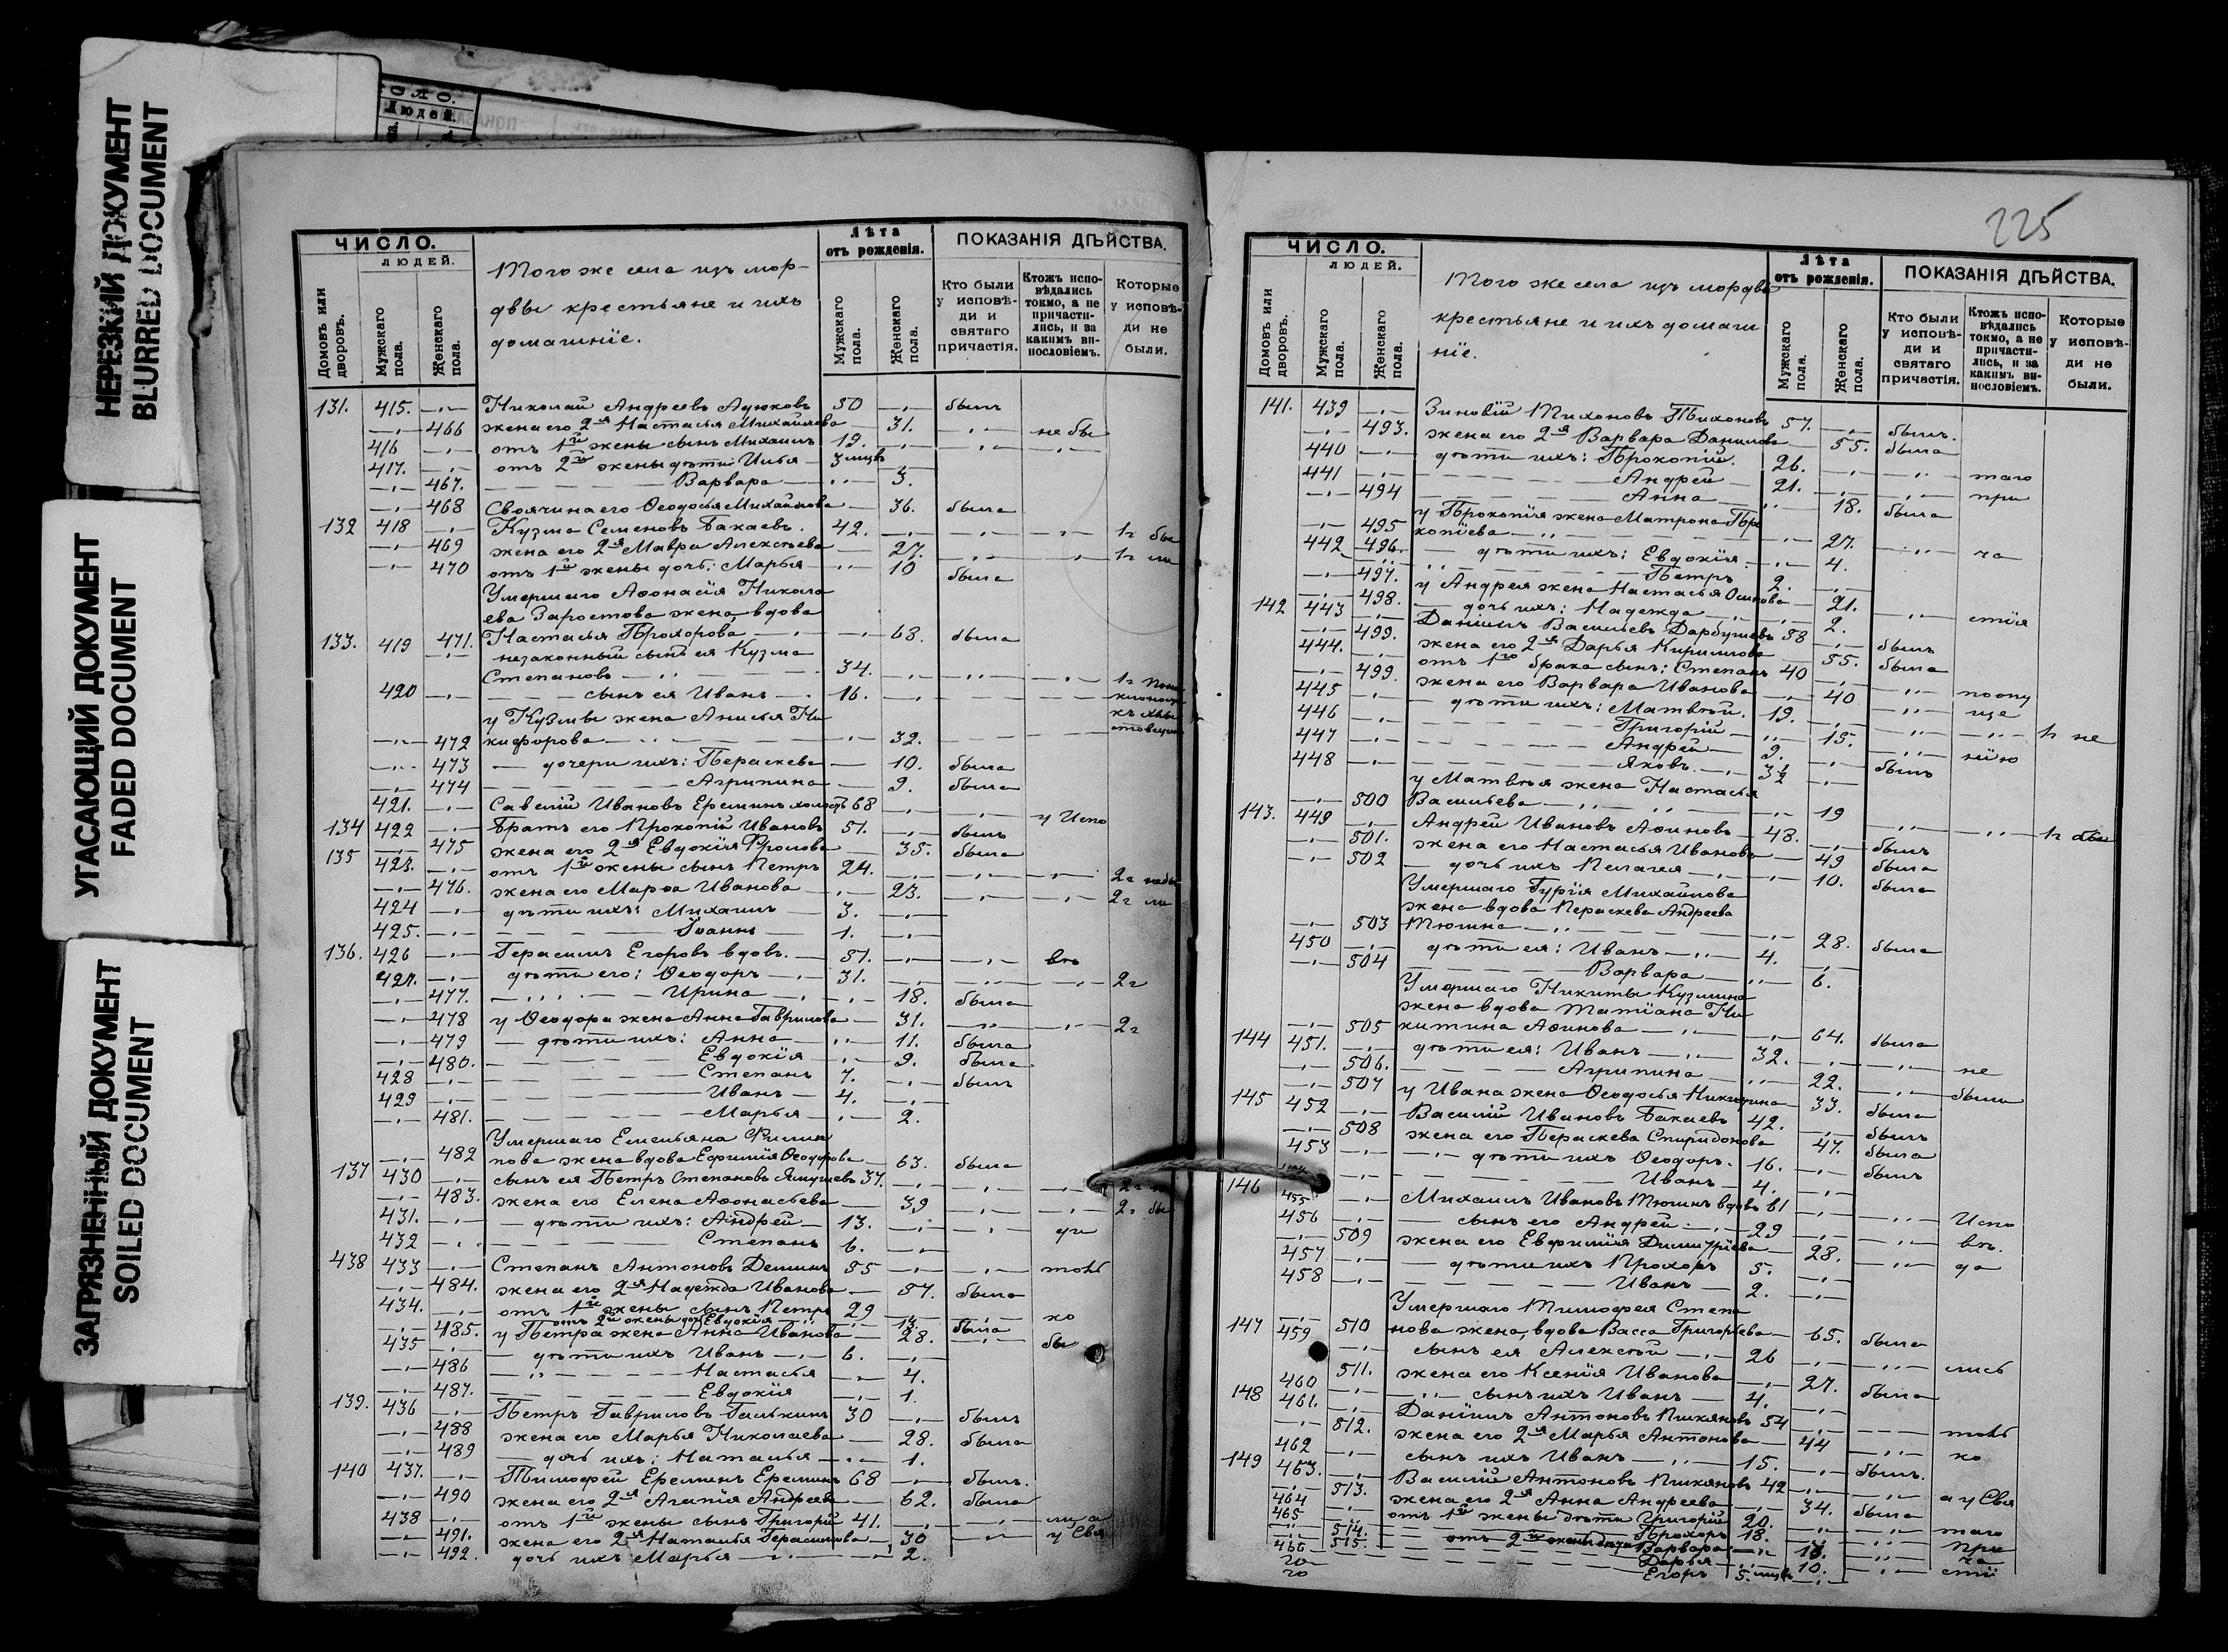 НЕРЕЗКИЙ ДОКУМЕНТ
BLURRED DOCUMENT
УГАСАЮЩИЙ ДОКУМЕНТ
FADED DOCUMENT
ЗАГРЯЗНЕННЫЙ ДОКУМЕНТ
SOILED DOCUMENT
Людей.
ЧИСЛО.
ЛЮДЕЙ.
Домовъ или дворовъ.
Мужскаго пола.
Женскаго пола.
Того же села изъ мор-
двы крестьяне и ихъ
домашніе.
Лѣта
отъ рожденія.
Мужскаго пола.
Женскаго пола.
ПОКАЗАНІЯ ДѢЙСТВА.
Кто были у исповѣ-ди и святаго причастія.
Ктожъ испо-вѣдались токмо, а не причасти-лись, и за какимъ ви-нословіемъ.
Которые у исповѣ-ди не были.
131. 415. Николай Андреевъ 50 былъ
466 жена его 2я Настасья Михайлова 31. не бы
416 отъ 1й жены сынъ Михаилъ 19.
417. отъ 2й жены дѣти: Илья 3 мцвъ
467. Варвара 3.
468 Своячина его Ѳеодосья Михайлова 36. была
132 418 Кузма Семеновъ Бакаевъ. 42. 1г бы
469 жена его 2я Мавра Алексѣева 27. 1г ли
470 отъ 1й жены дочь: Марья 10 была
Умершаго Аѳонасія Никола
ева Заростова жена, вдова
133. 419 471. Настасья Прохорова 68. была
незаконный сынъ ея Кузма
Степановъ 34.
420 сынъ ея Иванъ 16.
у Кузмы жена Анисья Ни
472 кифорова 32.
473 дочери ихъ: Параскева 10. была
474 Агрипина 9. была
421. Савелій Ивановъ Ереминъ холостъ 68 у Испо
134 422 Братъ его Прокопій Ивановъ 51. былъ
475 жена его 2я Евдокія Фролова 35. была
135 423. отъ 1й жены сынъ Петръ 24. 2г
476. жена его Марѳа Иванова 23. 2г ли
424 дѣти ихъ: Михаилъ 3.
425. Іоаннъ 1.
136. 426 Герасимъ Егоровъ вдовъ. 51. вѣ
427. дѣти его: Ѳеодоръ 31. 2г
477. Ирина 18. была
478 у Ѳеодора жена Анна Гаврилова 31. 2г
479 дѣти ихъ: Анна 11. была
480. Евдокія 9. была
428 Степанъ 7. былъ
429 Иванъ 4.
481. Марья 2.
Умершаго Емельяна Филип
482 пова жена вдова Ефимія Ѳеодорова 63. была
137 430 сынъ ея Петръ Степановъ Ямушевъ 37.
483. жена его Елена Аѳонасьева 39 2г бы
431. дѣти ихъ: Андрей 13. ди
432 Степанъ 6.
438 433 Степанъ Антоновъ Деминъ 55 токъ
484. жена его 2я Надежда Иванова 57. была
434. отъ 1й жены сынъ Петръ 29 ко
отъ 2й жены дочь Евдокія 13. была
485. у Петра жена Анна Иванова 28. бы
435 дѣти ихъ Иванъ 6.
486 Настасья 4.
487. Евдокія 1.
139. 436 Петръ Гавриловъ Галькинъ 30 былъ
488 жена его Марья Николаева 28. была
489 дочь ихъ: Наталья 1.
140 437. Тимофей Ереминъ Ереминъ 68 былъ.
490 жена его 2я Агапія Андреева 62. была
438 отъ 1й жены сынъ Григорій 41. ли а
491. жена его 2я Наталья Герасимова 30 у Свя
492. дочь ихъ Марья 2.
225
ЧИСЛО.
ЛЮДЕЙ.
Домовъ или дворовъ.
Мужскаго пола.
Женскаго пола.
Того же села изъ мордвы
крестьяне и ихъ домаш
ніе.
Лѣта
отъ рожденія.
Мужскаго пола.
Женскаго пола.
ПОКАЗАНІЯ ДѢЙСТВА.
Кто были у исповѣ-ди и святаго причастія.
Ктожъ испо-вѣдались токмо, а не причасти-лись, и за какимъ ви-нословіемъ.
Которые у исповѣ-ди не были.
141. 439 Зиновій Тихоновъ Тихоновъ 57. былъ.
493. жена его 2я Варвара Данилова 55. была
440 дѣти ихъ: Прокопій. 26. таго
441 Андрей 21. при
494 Анна 18. была
у Прокопія жена Матрона Про
495 копіева 27. ча
442 496. дѣти ихъ: Евдокія 4.
Петръ 2.
497. у Андрея жена Настасья Осипова 21. стія
498. дочь ихъ: Надежда 2.
142 443 Даніилъ Васильевъ 58 былъ
499. жена его 2я Дарья Кирилова 55. была
444. отъ 1го брака сынъ: Степанъ 40
499. жена его Варвара Иванова 40 поопу
445 дѣти ихъ: Матвѣй. 19. ще
446 Григорій 15. 1г не
447 Андрей 9. нію
448 Яковъ. 3½ былъ
у Матвѣя жена Настасья
500 Васильева 19 1г бы
143. 449 Андрей Ивановъ Аѳиновъ 48. былъ
501. жена его Настасья Иванова 49 была
502 дочь ихъ Пелагея 10. была
Умершаго Гурія Михайлова
жена вдова Параскева Андреева
503 Тюгина 28. была
450 дѣти ея: Иванъ 4.
504 Варвара 6.
Умершаго Никиты Кузмина
жена вдова Татіана Ни
505 китина Аѳинова 64. была
144 451. дѣти ея: Иванъ 32. не
506. Агрипина 22. были
507 у Ивана жена Ѳеодосья 33. была
145 452 Василій Ивановъ Бакаевъ 42. былъ
508 жена его Параскева Спиридонова 47. была
453 дѣти ихъ Ѳеодоръ. 16. былъ
Иванъ 4.
146 455 Михаилъ Ивановъ Тюгинъ вдовъ 61 Испо
456 сынъ его Андрей 29 вѣ.
509 жена его Евфимія Димитріева 28. да
457 дѣти ихъ Прохоръ 5.
458 Иванъ 2.
Умершаго Тимофея Степа
147 510 нова жена, вдова Васса Григорьева 65. была
459 сынъ ея Алексѣй 26 лись
511. жена его Ксенія Иванова 27. была
460 сынъ ихъ Иванъ 4.
148 461. Даніилъ Антоновъ Пижяновъ 54 токъ
512. жена его 2я Марья Антонова 44 ко
462 сынъ ихъ Иванъ 15. былъ.
149 463. Василій Антоновъ Пижяновъ 42 а у Свя
513. жена его 2я Анна Андреева 34. была
464 отъ 1й жены дѣти Григорій 20. таго
465 Прохоръ 18. при
514. отъ 2й жены дѣти Варвара 13. ча
515. Дарья 10. стї
466 Егоръ 5. мцвъ